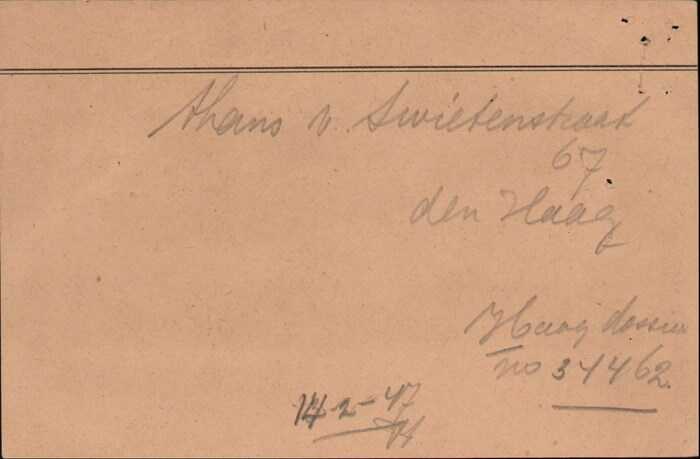 thans v. Swietenstraat
67
den Haag
Haag dossier
no 34462.
14-2-47